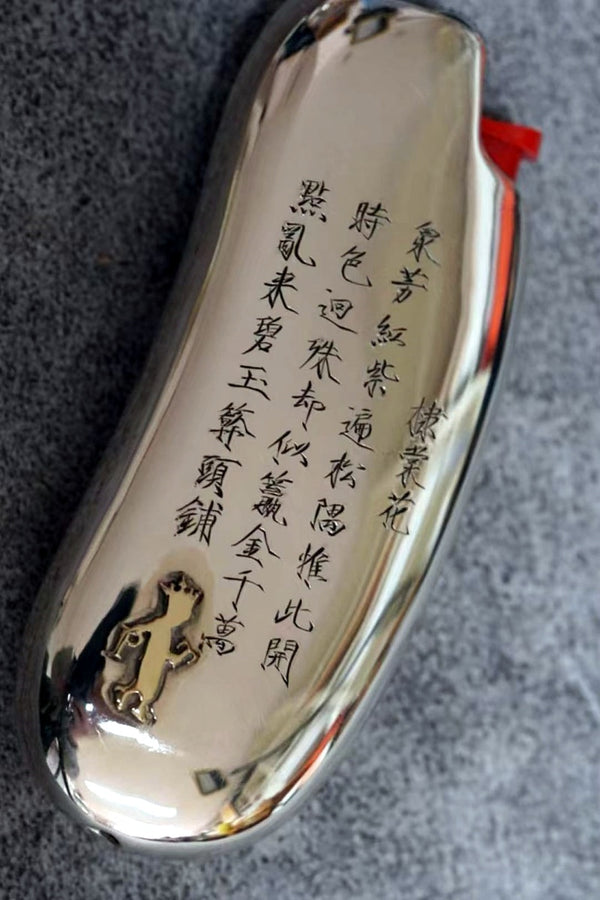 棣棠花
眾芳紅紫遍松隅惟此開
時色迥殊却似籯金千萬
點亂来碧玉頭鋪